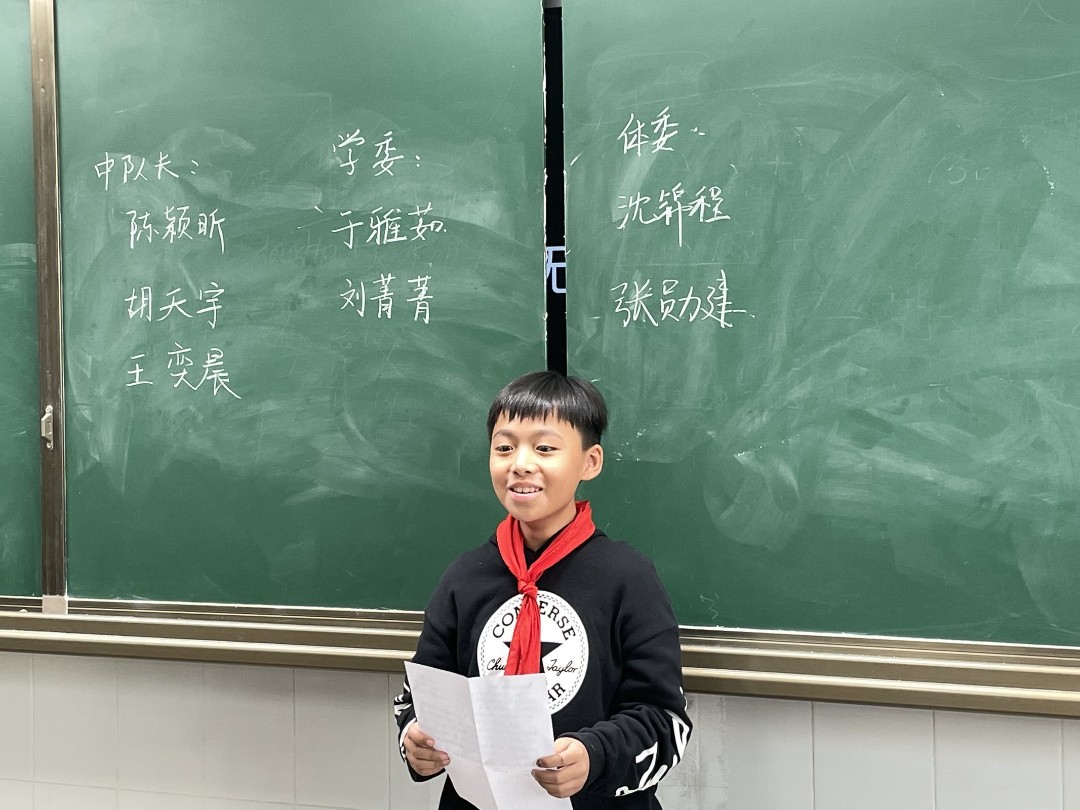 中队长：
陈颖昕
胡天宇
王奕晨
学委：
于雅茹
刘菁菁
体委：
沈锦程
张勋建
CONVERSE
Chuck Taylor